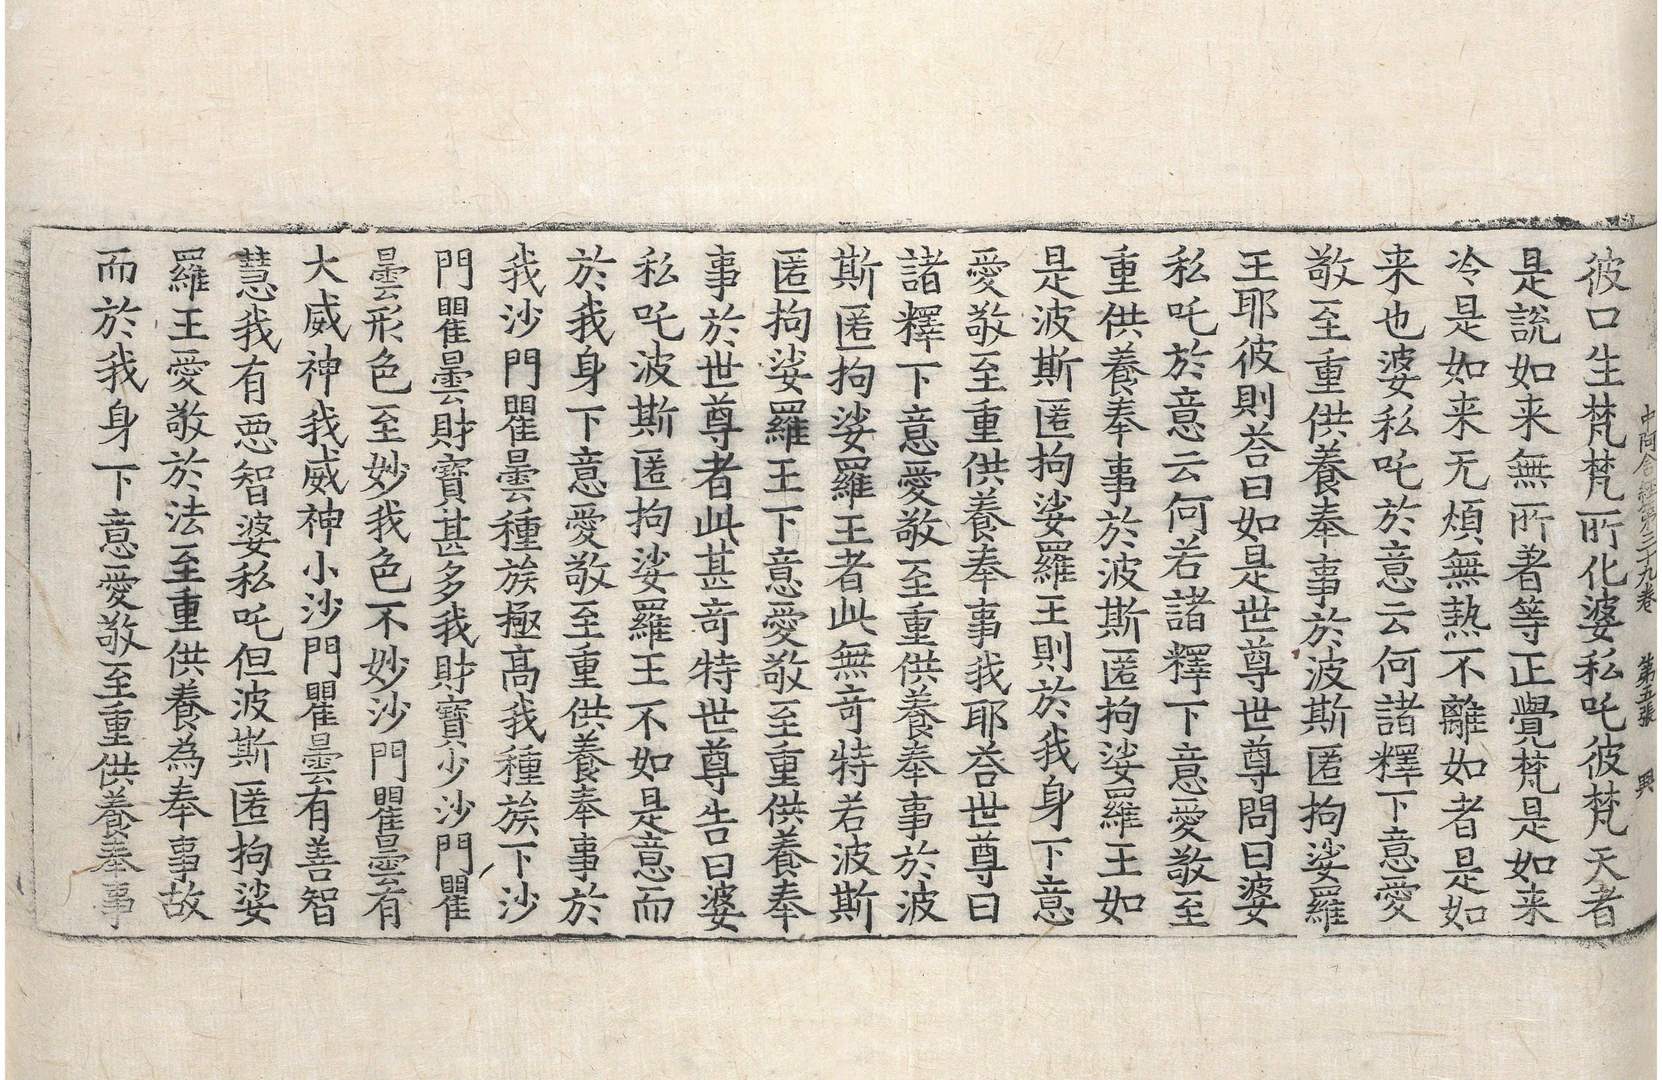 中阿含經第三十九卷　第五張　興
彼口生梵梵所化婆私吒彼梵天者
是說如来無所著等正覺梵是如来
冷是如来无煩無熱不離如者是如
来也婆私吒於意云何諸釋下意愛
敬至重供養奉事於波斯匿拘娑羅
王耶彼則荅曰如是世尊世尊問曰婆
私吒於意云何若諸釋下意愛敬至
重供養奉事於波斯匿拘娑羅王如
是波斯匿拘娑羅王則於我身下意
愛敬至重供養奉事我耶荅世尊曰
諸釋下意愛敬至重供養奉事於波
斯匿拘娑羅王者此無竒特若波斯
匿拘娑羅王下意愛敬至重供養奉
事於世尊者此甚竒特世尊告曰婆
私吒波斯匿拘娑羅王不如是意而
於我身下意愛敬至重供養奉事於
我沙門瞿曇種族極高我種族下沙
門瞿曇財寶甚多我財寶少沙門瞿
曇形色至妙我色不妙沙門瞿曇有
大威神我威神小沙門瞿曇有善智
慧我有惡智婆私吒但波斯匿拘娑
羅王愛敬於法至重供養為奉事故
而於我身下意愛敬至重供養奉事